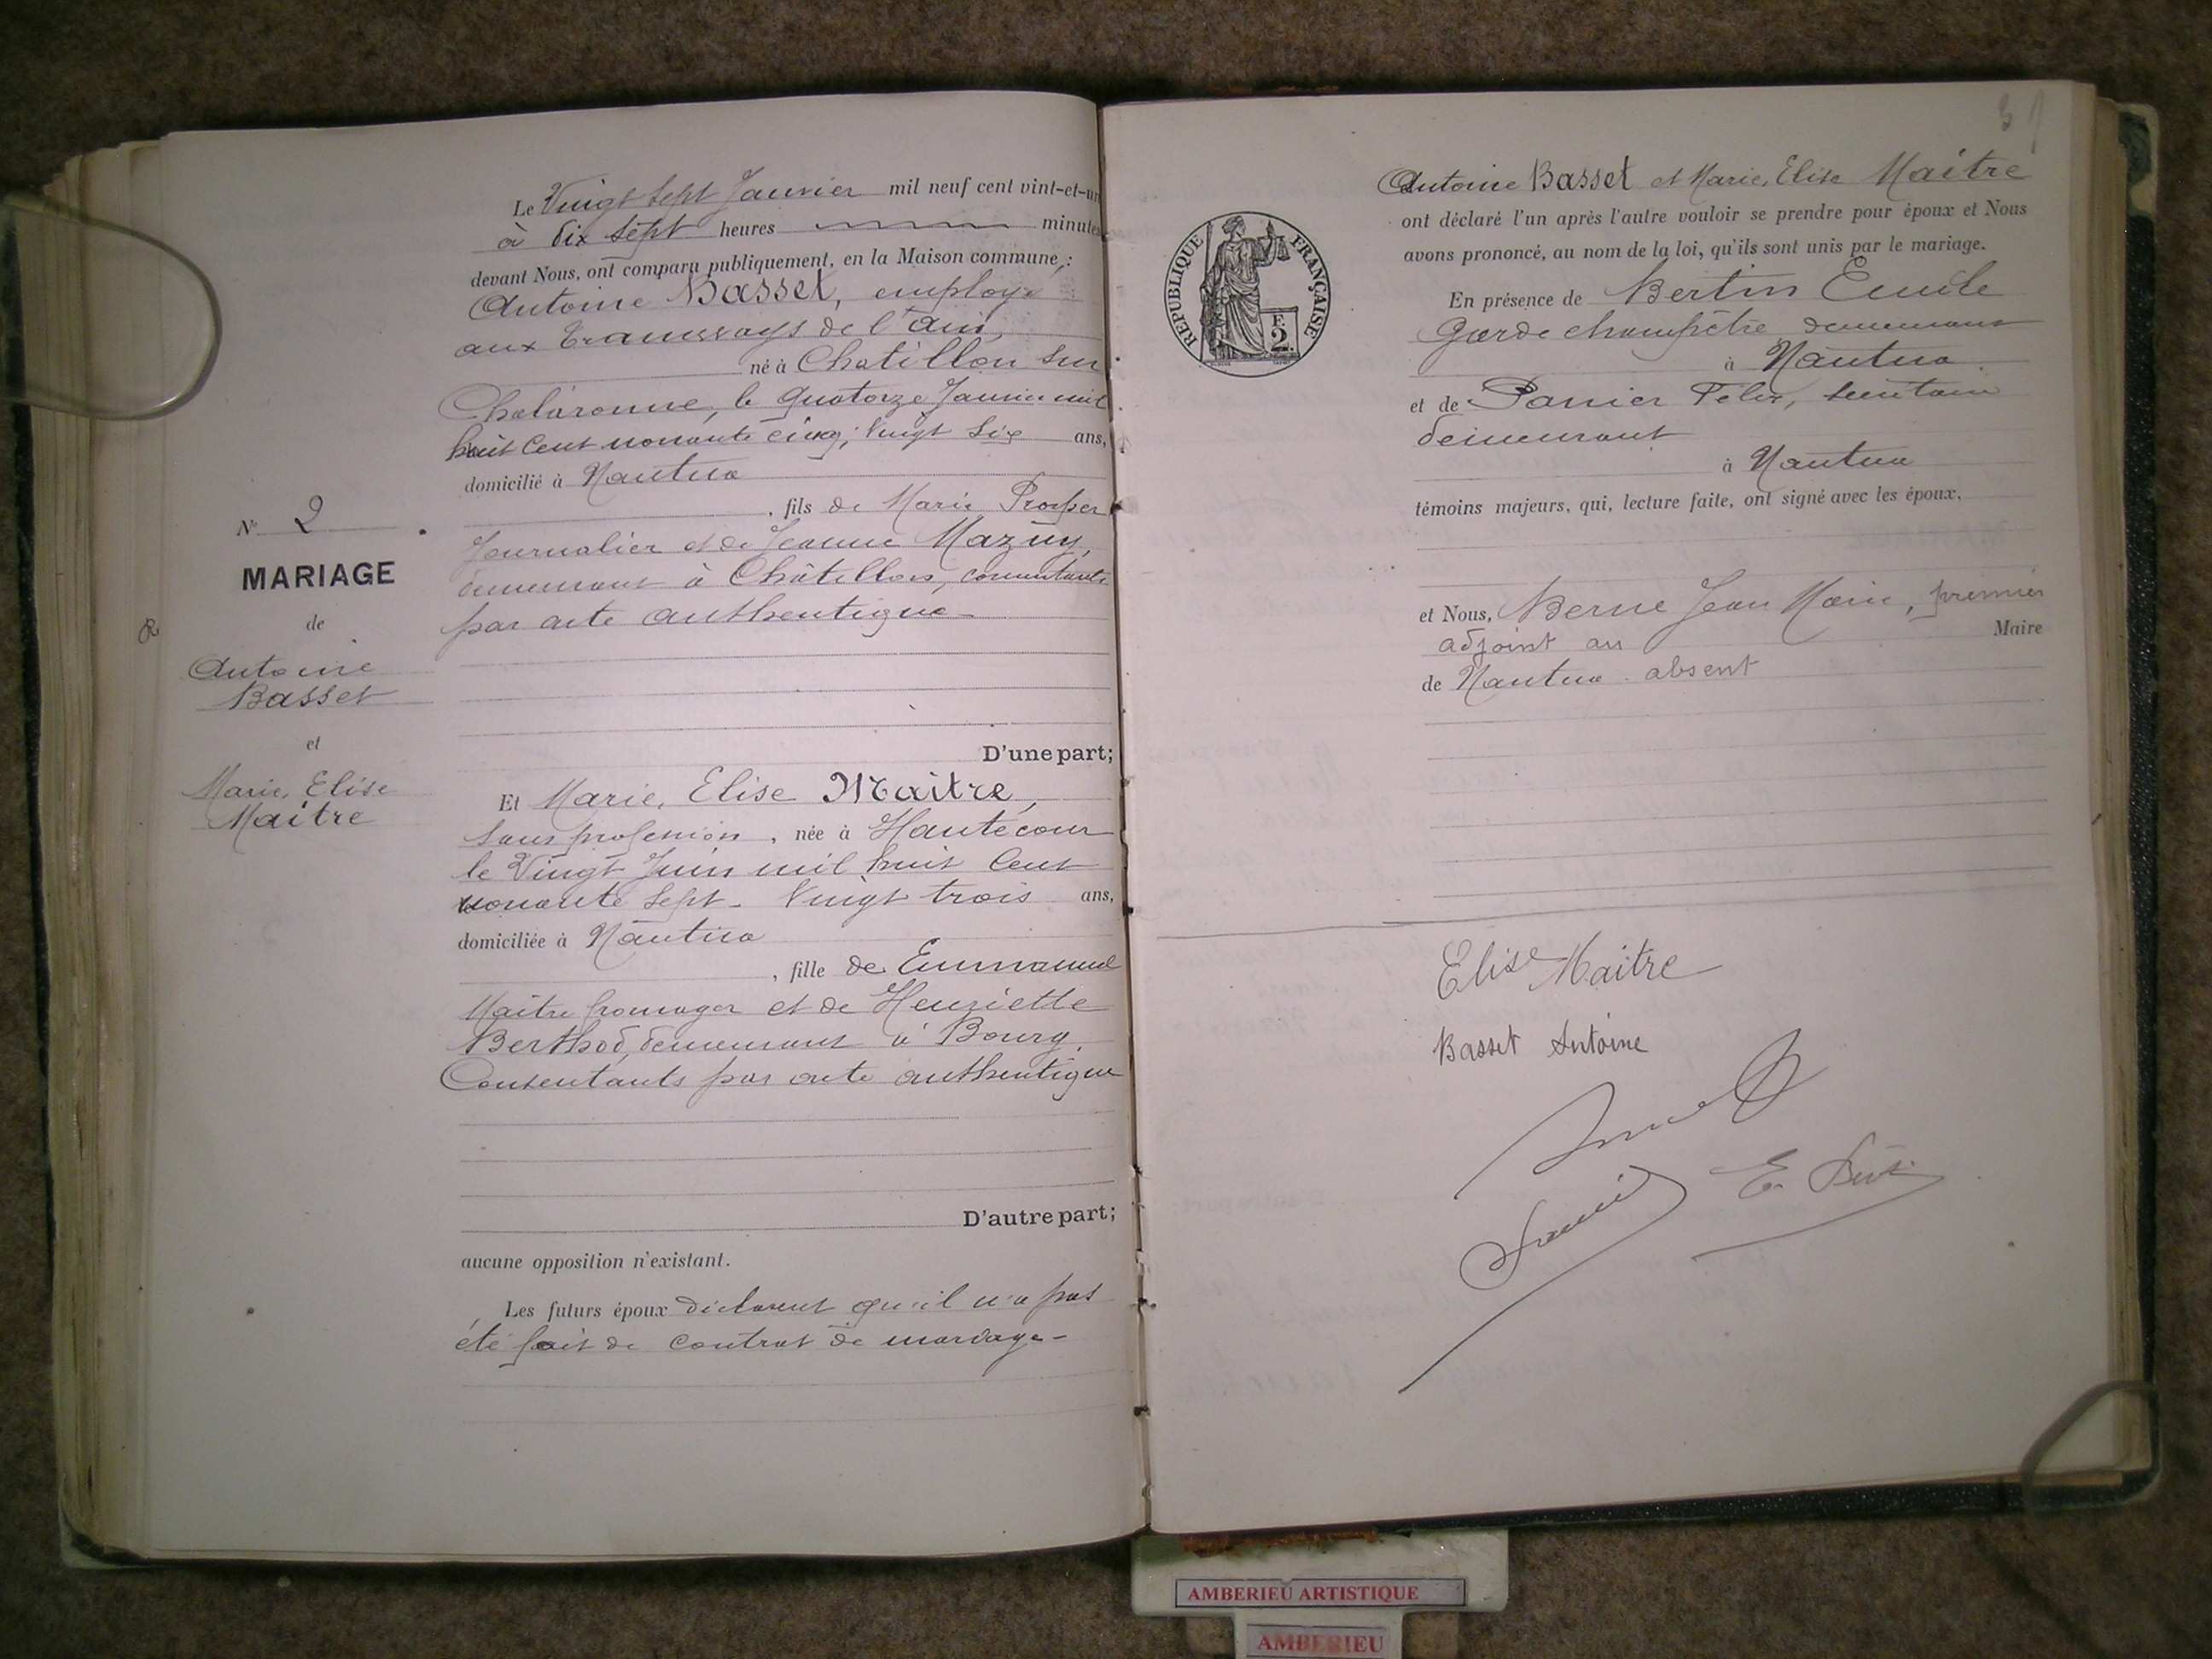 N° 2
MARIAGE
de
Antoine
Basset
et
Marie, Elise
Maitre
Le Vingt sept Janvier mil neuf cent vint-et-un
à dix sept heures minutes
devant Nous, ont comparu publiquement, en la Maison commune,:
Antoine Basset, employé
aux tramways de l'Ain,
né à Chatillon sur
Chalaronne, le quatorze Janvier mil
huit cent nonante cinq; Vingt Six ans,
domicilié à Nantua
, fils de Marie Prosper
Journalier et de Jeanne Mazuy,
demeurant à Châtillon, consentants
par acte authentique
D'une part;
Et Marie, Elise Maitre,
sans profession, née à Hautecour
le Vingt Juin mil huit Cent
nonante sept - Vingt trois ans,
domiciliée à Nantua
, fille de Emmanuel
Maitre fromager et de Henriette
Berthod, demeurant à Bourg,
Consentants par acte authentique
D'autre part;
aucune opposition n'existant.
Les futurs époux déclarent qu'il n'a pas
été fait de contrat de mariage -
REPUBLIQUE FRANÇAISE
F. 2.
Antoine Basset et Marie, Elise Maitre
ont déclaré l'un après l'autre vouloir se prendre pour époux et Nous
avons prononcé, au nom de la loi, qu'ils sont unis par le mariage.
En présence de Bertin Emile
Garde champêtre demeurant
à Nantua
et de Panier Félix, secrétaire
demeurant
à Nantua
témoins majeurs, qui, lecture faite, ont signé avec les époux,
et Nous, Berne Jean Marie, premier
adjoint au Maire
de Nantua absent
Elise Maitre
Basset Antoine
AMBERIEU ARTISTIQUE
AMBERIEU